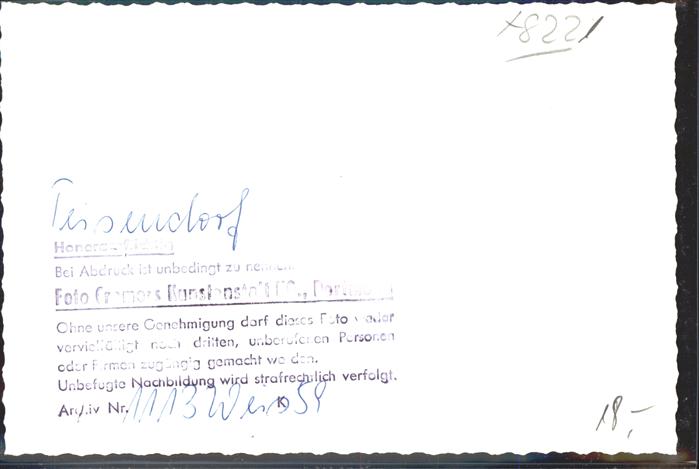 x8221
Teisendorf
Honorarpflichtig
Bei Abdruck ist unbedingt zu nennen:
Foto Cramers Kunstanstalt KG., Dortmund
Ohne unsere Genehmigung darf dieses Foto weder
vervielfältigt noch dritten, unberufenen Personen
oder Firmen zugängig gemacht werden.
Unbefugte Nachbildung wird strafrechtlich verfolgt.
Archiv Nr. 1113 K 59
18,-